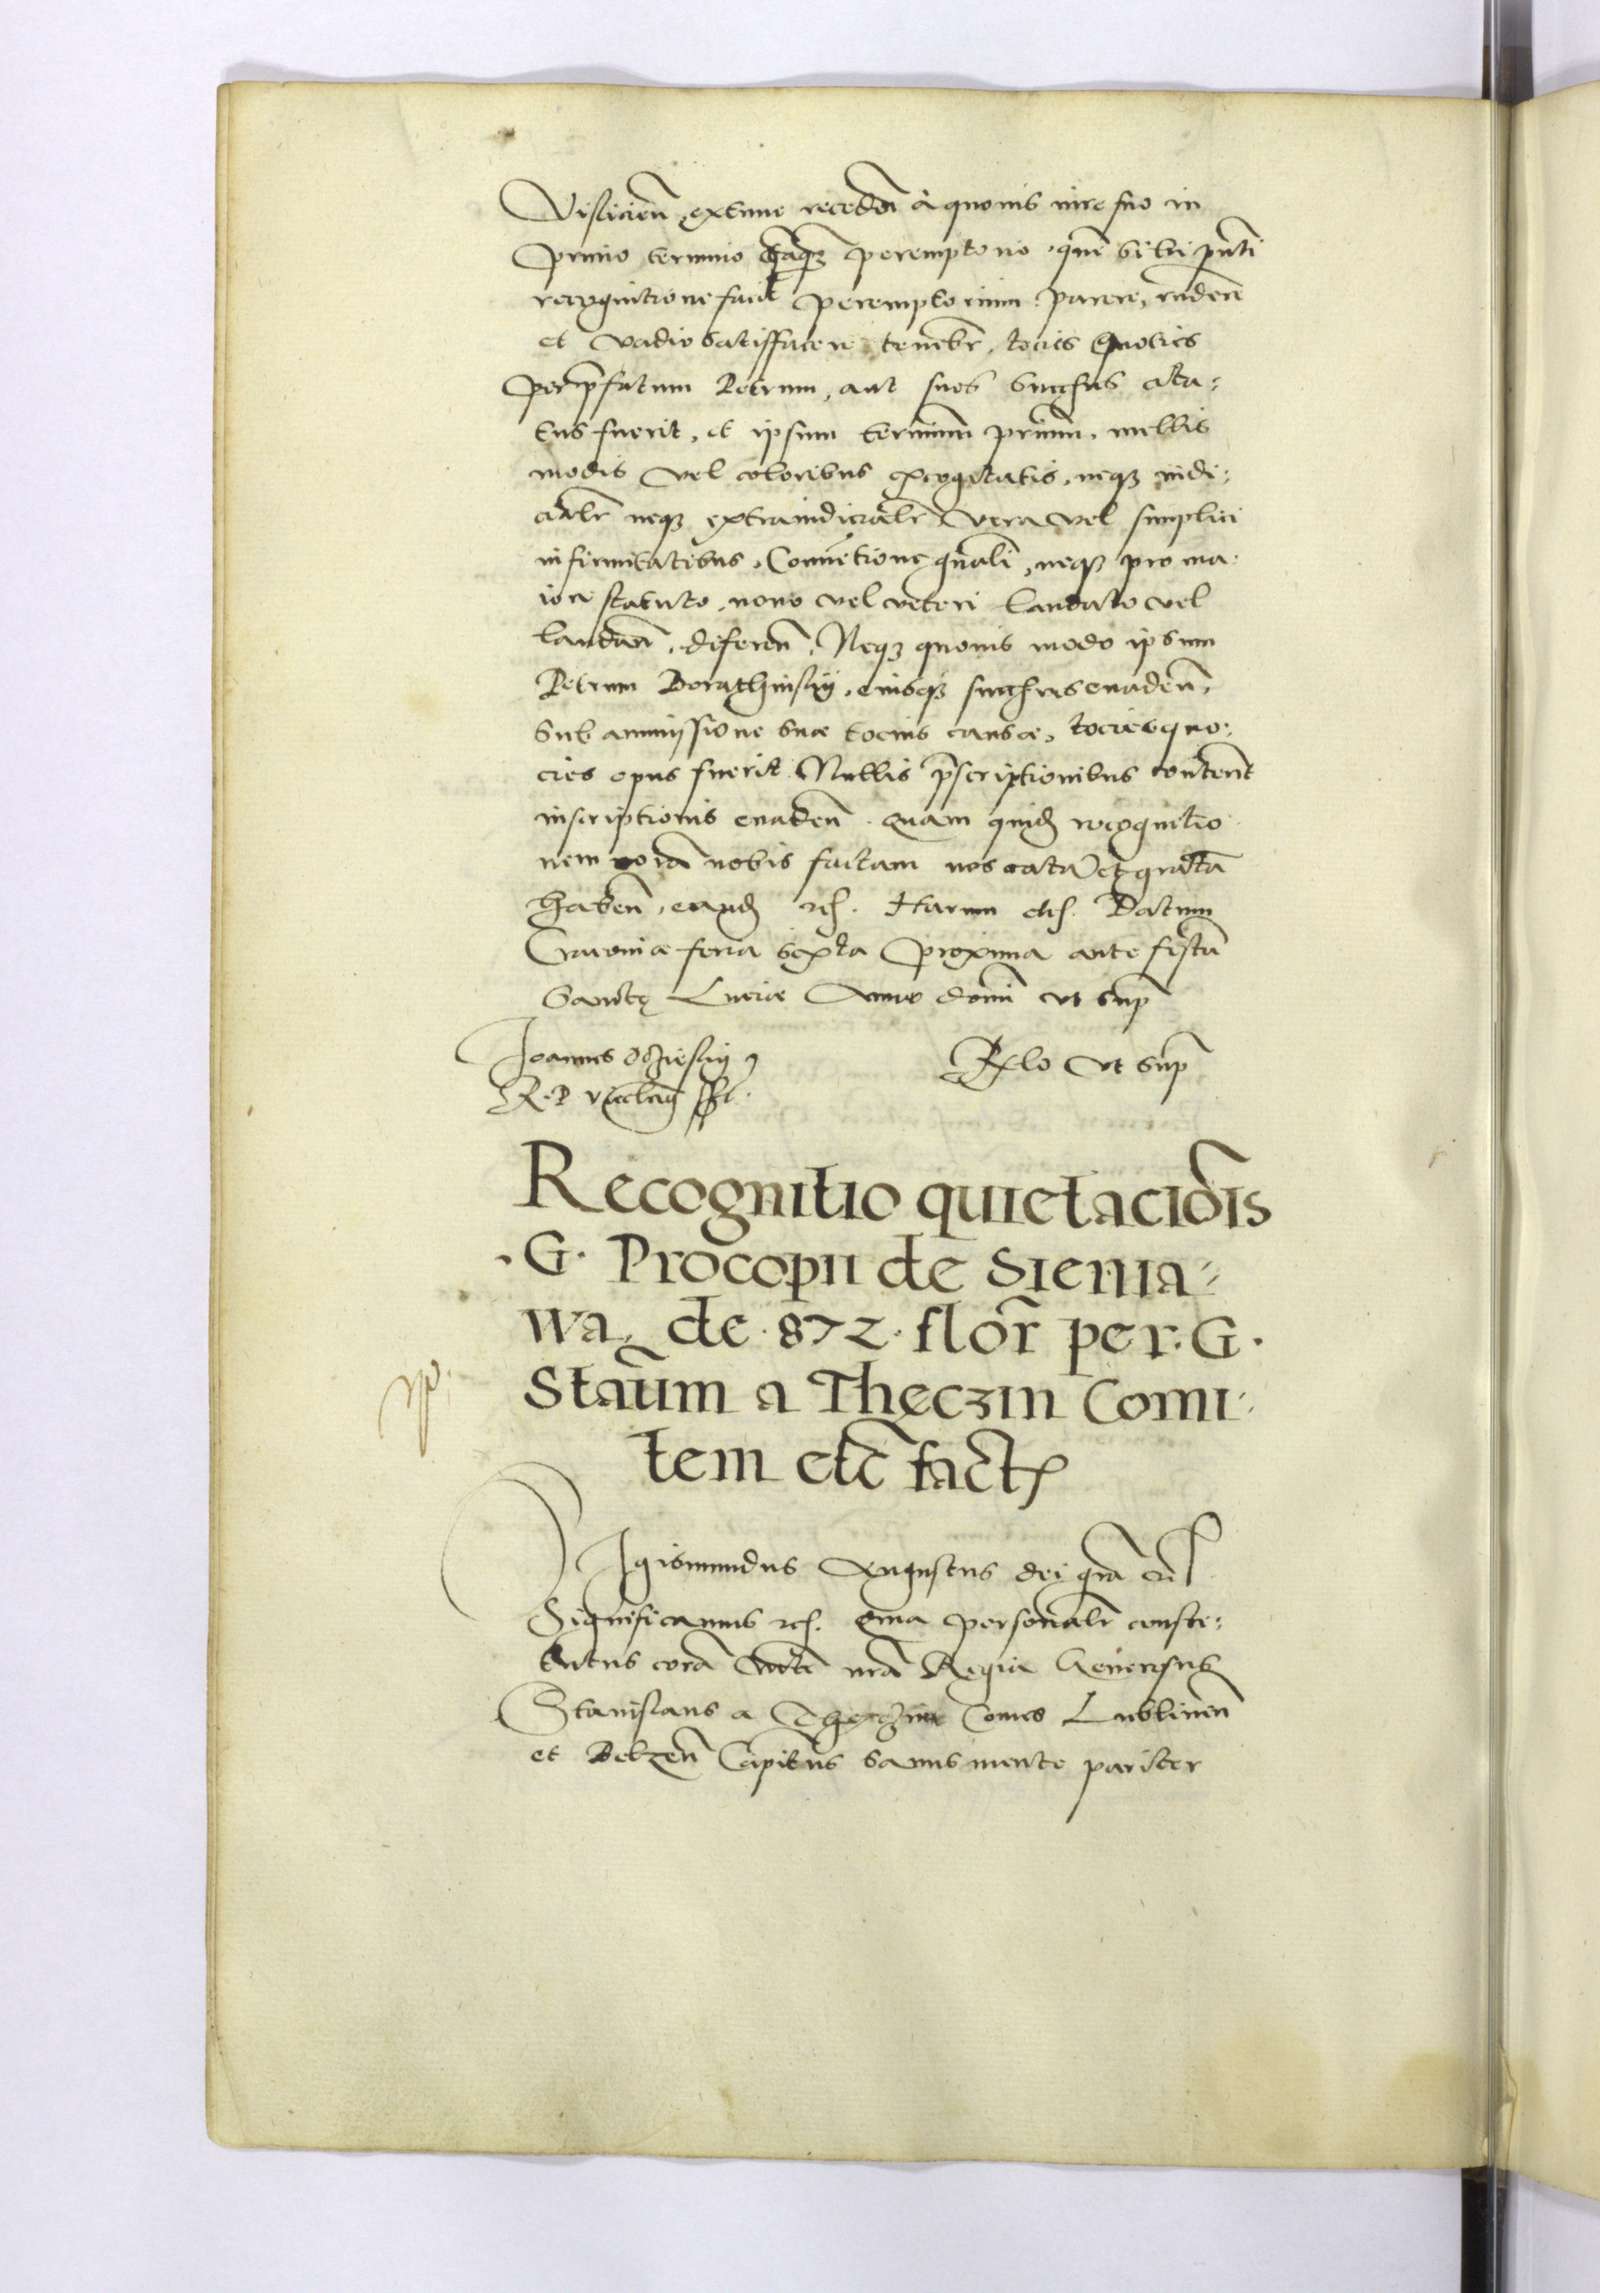 Visliciēn, extunc recedeñ à quovis iure suo in
primo termino tāq̃ȝ peremptorio, quē sibi pñti
recognitione facit peremptorium. parere, rñdere
et vadio satisffacere tenebr̃, tocies quoties
per p̃fatum Petrum, aut suos succ̃res cita-
tus fuerit, et ipsum terminum primum, nullis
modis vel coloribus excogitatis, neqȝ iudi-
cialr̃ neqȝ extraiudicialr̃ vera vel simplici
infirmitatibus, Conuētione gñali, neqȝ pro ma-
iori statuto, nouo vel veteri laudato vel
laudan̄, diferen̄. Neqȝ quouis modo ipsum
Petrum Borathinsky, eiusqȝ succ̃res euaden̄,
Sub ammissione suæ tocius causæ, tociesquo-
cies opus fuerit. Nullis p̄scriptionibus content̄
inscriptionis euaden̄. Quam quid̄ recognitio-
nem corā nobis factam nos ratā et gratā
haben̄, eand̄ rc̃. Harum etc̃. Datum
Cracouiæ feria sexta proxima ante festū
Sanctę Luciæ Anno domī vt sup̄
Joannes Oczieskÿ
R. P. vicecan̄ sst.
Rlo vt sup̄
Recognitio quietaciōis
. G. Procopii de Sienia-
wa, de .872. flor̄ per. G.
Staūm a Thęczin Comi-
tem etc̄ fact̃
Sigismundus Augustus dei gr̃a etc̃
Significamus rc̃. Quia personalr̃ consti-
tutus corā Mte nr̃a Regia Generosus
Stanislaus a Thęczin Comes Lublinen̄
et Belzen̄ Capitn̄s sanus mente pariter